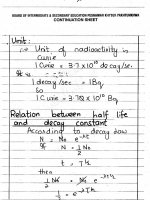 BOARD OF INTERMEDIATE & SECONDARY EDUCATION PESHAWAR KHYBER PAKHTUNKHWA
CONTINUATION SHEET
Unit:-
Unit of radioactivity is
curie.
1 Curie = 3.7x10¹⁰ decay/sec
1 decay/sec = 1Bq
So
1 Curie = 3.7x10¹⁰ Bq
Relation between half life
and decay constant
According to decay law
N = N₀ e^-λt
N = ½N₀
t = T½
then
½N₀ = N₀ e^-λT½
½ = e^-λT½